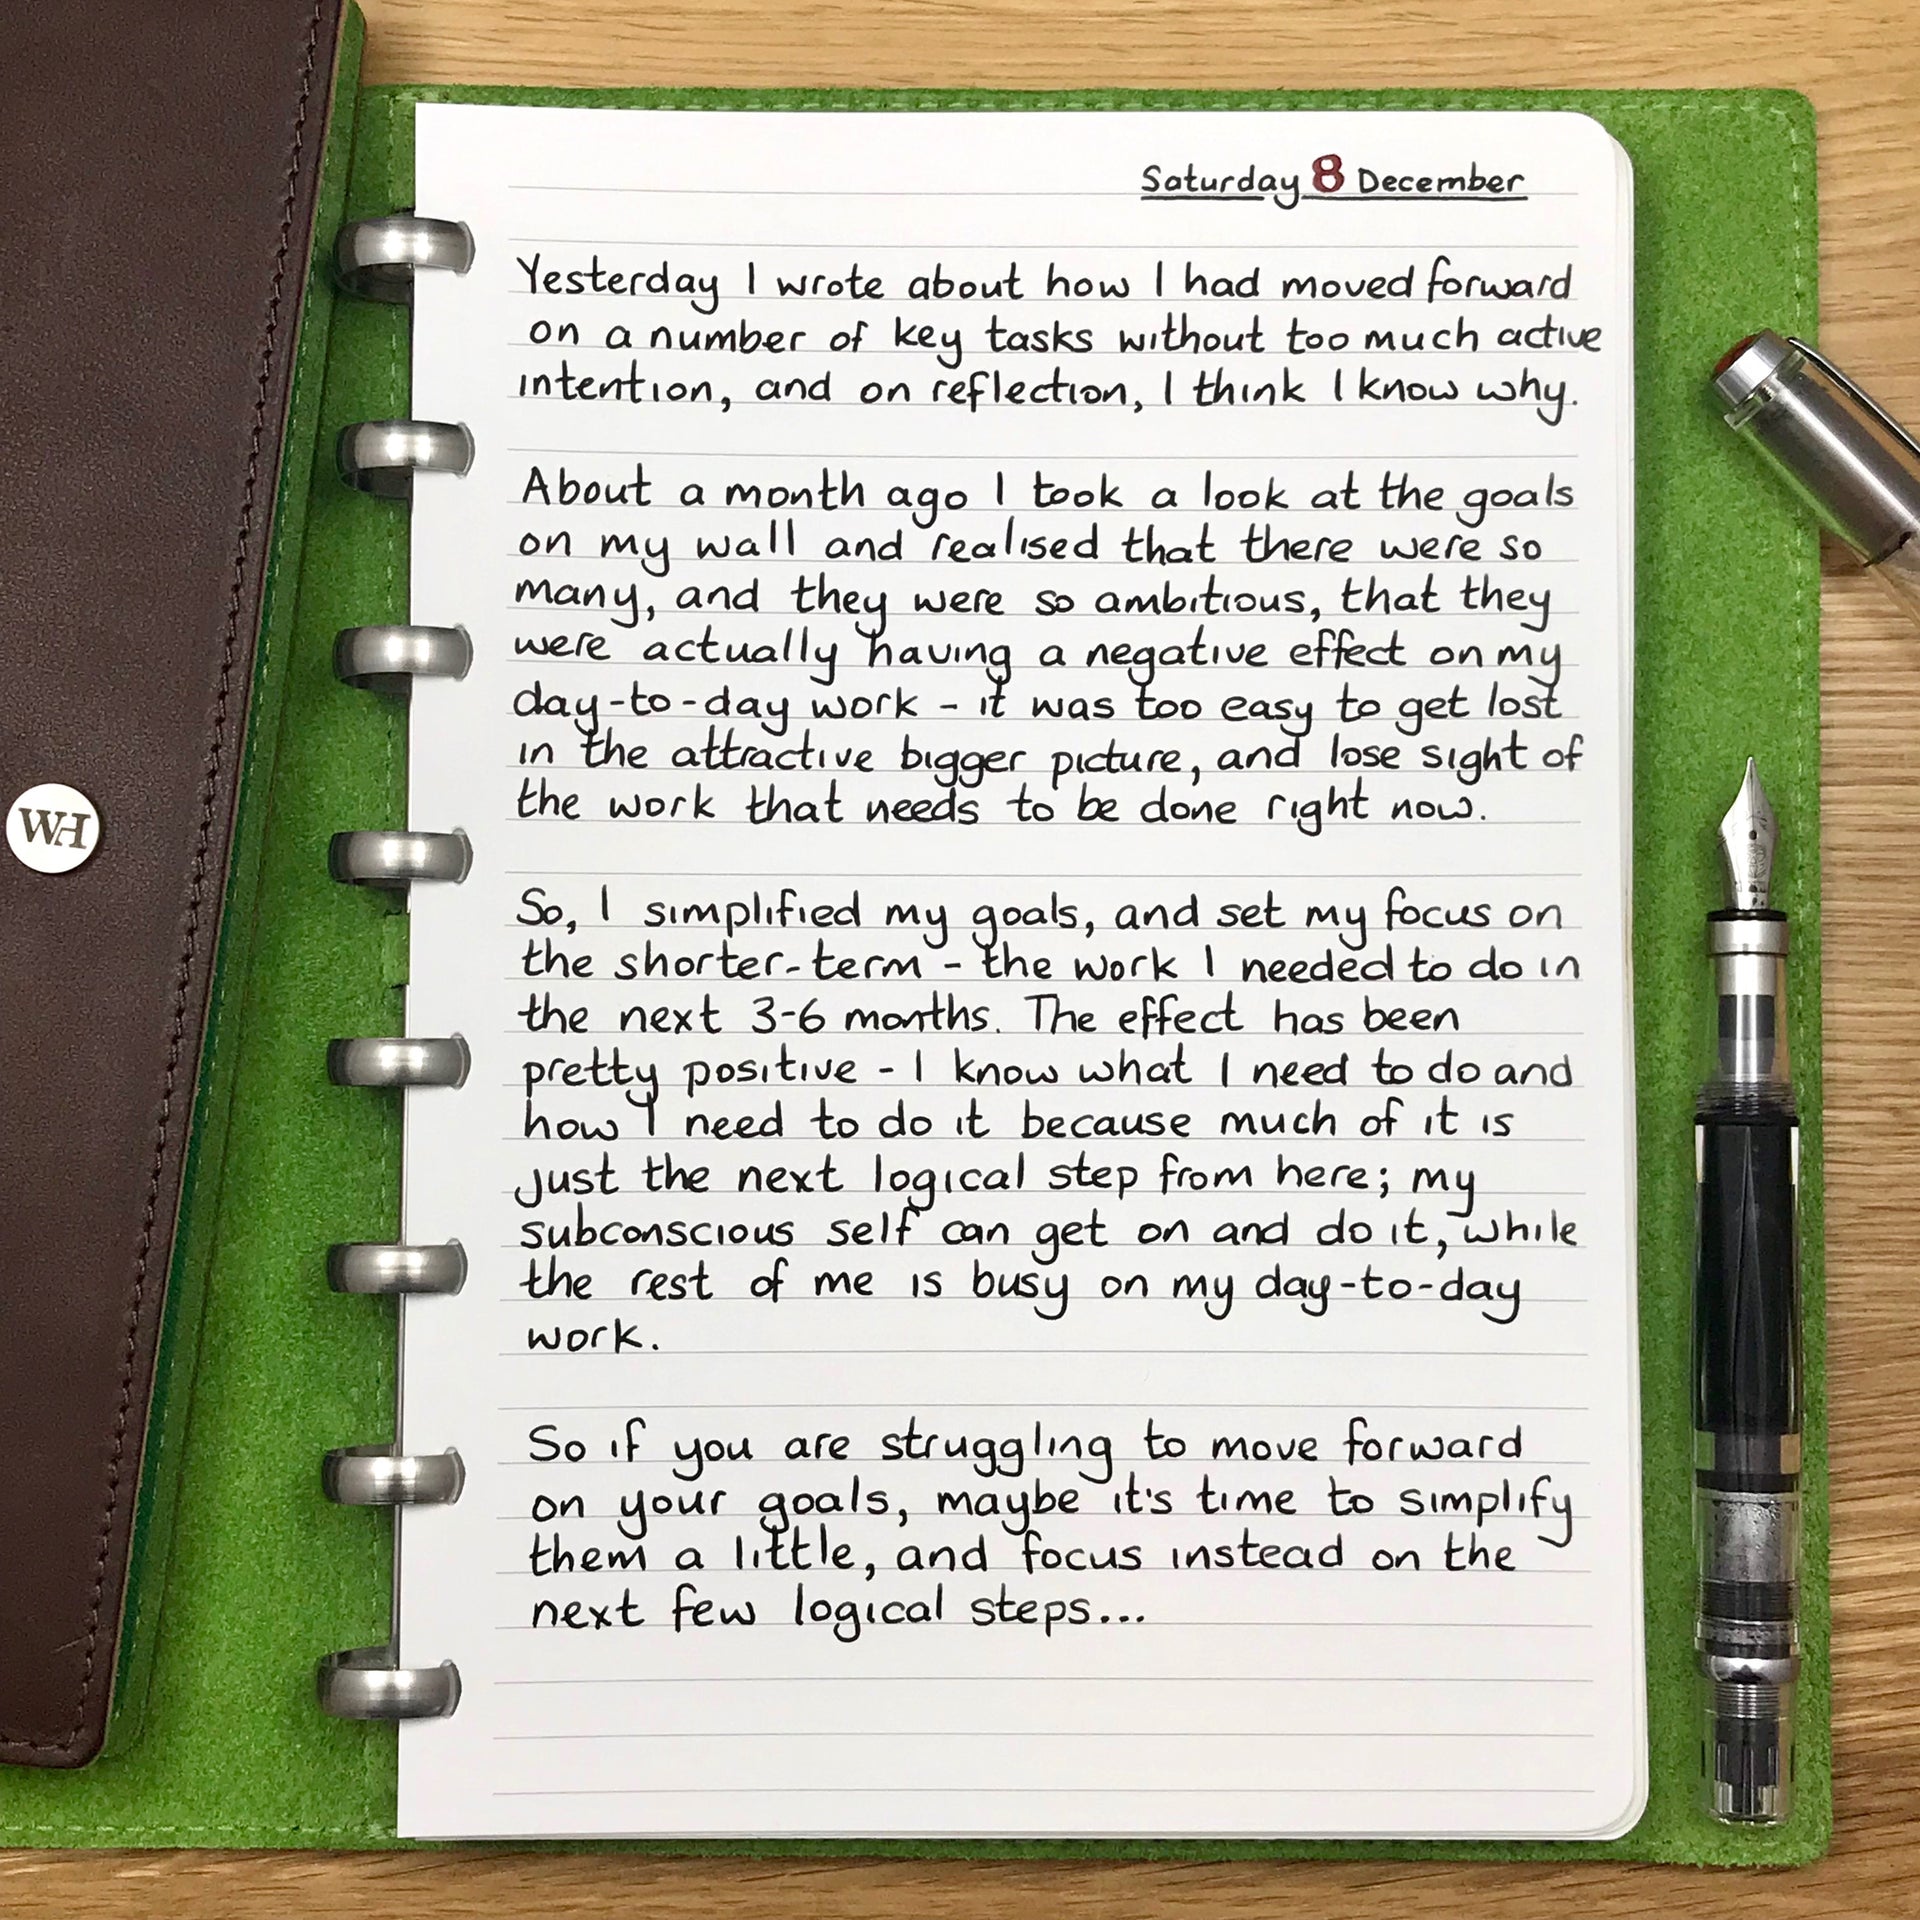 Saturday 8 December
Yesterday I wrote about how I had moved forward
on a number of key tasks without too much active
intention, and on reflection, I think I know why.
About a month ago I took a look at the goals
on my wall and realised that there were so
many, and they were so ambitious, that they
were actually having a negative effect on my
day-to-day work - it was too easy to get lost
in the attractive bigger picture, and lose sight of
the work that needs to be done right now.
So, I simplified my goals, and set my focus on
the shorter-term - the work I needed to do in
the next 3-6 months. The effect has been
pretty positive - I know what I need to do and
how I need to do it because much of it is
just the next logical step from here; my
subconscious self can get on and do it, while
the rest of me is busy on my day-to-day
work.
So if you are struggling to move forward
on your goals, maybe it's time to simplify
them a little, and focus instead on the
next few logical steps...
WH